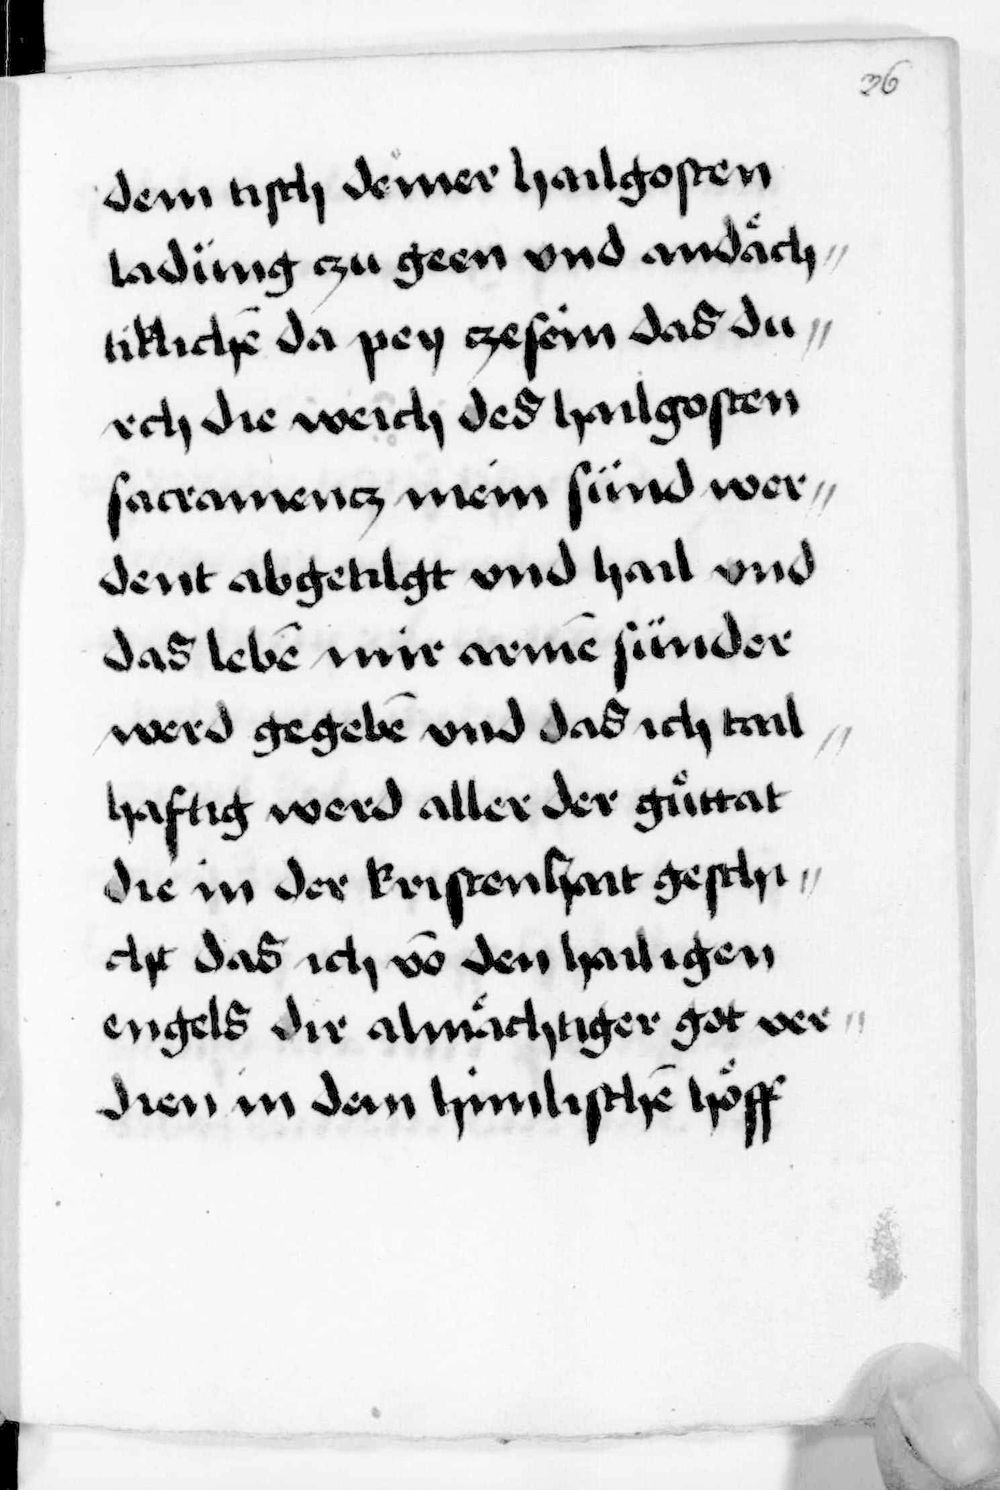 36
dem tisch deiner hailgosten
ladüng czu geen vnd andaͤch〃
tiklichē da pey czesein das du〃
rch die weich des hailgosten
sacramencz mein sünd wer〃
dent abgetilgt vnd hail vnd
das lebē mir armē sünder
werd gegebē vnd das ich tail〃
haftig werd aller der guͤttat
die in der kristenhait geschi〃
cht das ich vō den hailigen
engels dir almaͤchtiger got ver〃
dien in dem himlischē hoͤff